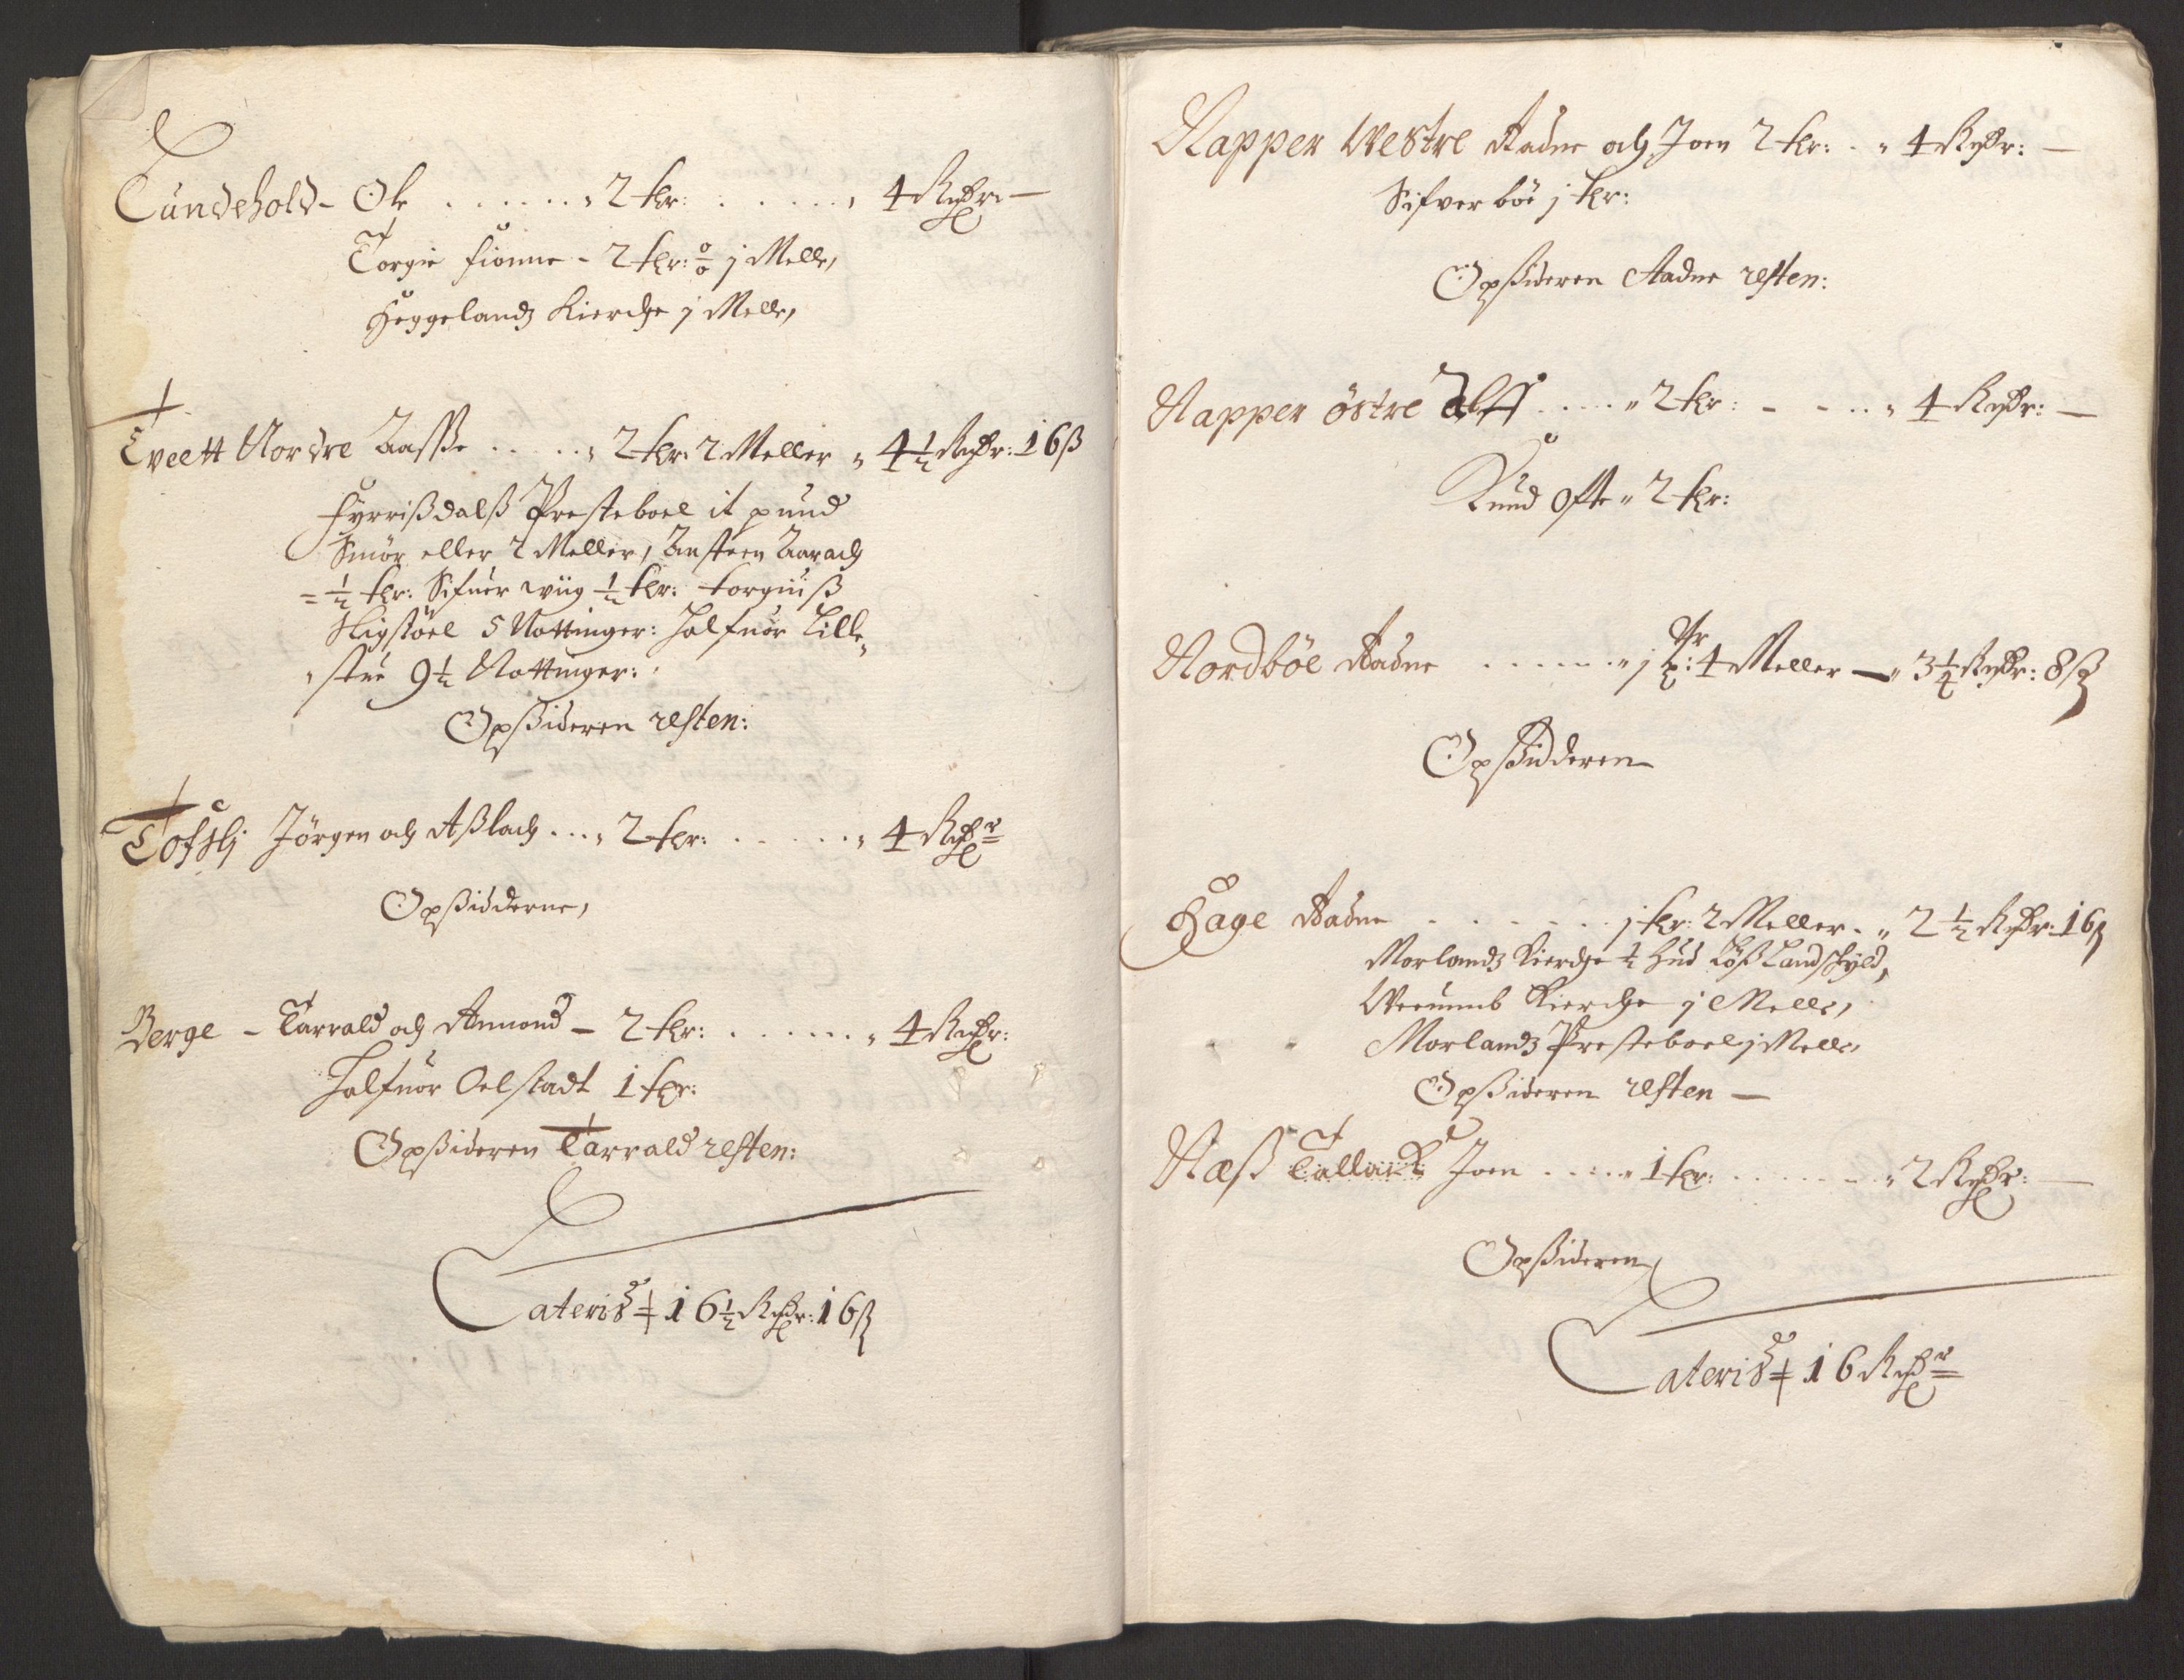 Lundehold - Ole . . . . . . 2 kr: . . . . . . 4 Rixdr: —
Torgie fionne - 2 kr: % j Melle,
Heggelandz Kierche j Melle,
Tveett Nordre Aasse . . . . . 2 kr: 2 Meller " 4½ Rixdr: 16 ß
Fyrrißdalß Presteboel it pund
Smör eller 2 Meller, Ansteen Aarach
= ½ kr: Sifuer wiig ½ kr: torgiuß
Skigstöel 5 Nottinger: Halfuor Lille„
„stue 9½ Nottinger:
Opßideren resten:
Toffsli Jörgen och Aßlach . . . 2 kr: . . . . . . 4 Rixdr
Opßidderne,
Berge - Tarrald och Amond - 2 kr: . . . . . . 4 Rixdr:
Halfuor Oelstadt 1 kr:
Opßideren Tarrald resten:
Lateris 16½ Rixdr: 16 ß
Napper Westre Aadne och Joen 2 kr: . „ 4 Rixdr: —
Sifver böe j kr:
Opßideren Aadne resten:
Napper östre Alff . . . . „ 2 kr: - - . . „ 4 Rixdr: —
Knud Ofte „ 2 kr:
Nordböe Aadne . . . . . . „ j kr: 4 Meller — „ 3¼ Rixdr: 8 ß
Opßidderen
Hage Aadne . . . . . . j kr: 2 Meller . „ 2½ Rixdr: 16 ß
Morlandz Kierche ½ Hud Löß Landskyld,
Weeumb Kierche j Melle,
Morlandz Presteboel j Melle,
Opßideren resten —
Næß Tallack Joen . . . . „ 1 kr: . . . . . . „ 2 Rixdr: —
Opßideren
Lateris 16 Rixdr